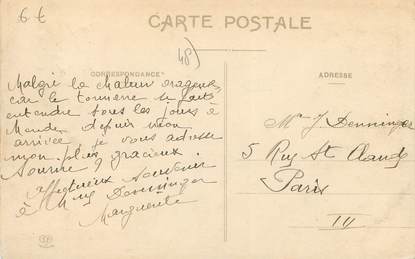 6 €
CARTE POSTALE
48)
CORRESPONDANCE
ADRESSE
Malgré la chaleur orageuse
car le tonnerre se fait
entendre tous les jours à
Mende depuis mon
arrivée je vous adresse
mon plus gracieux
sourire,
Affectueux souvenir
à Mme Denninger
Marguerite
Mr J Denninger
5 Rue St Claude
Paris
III